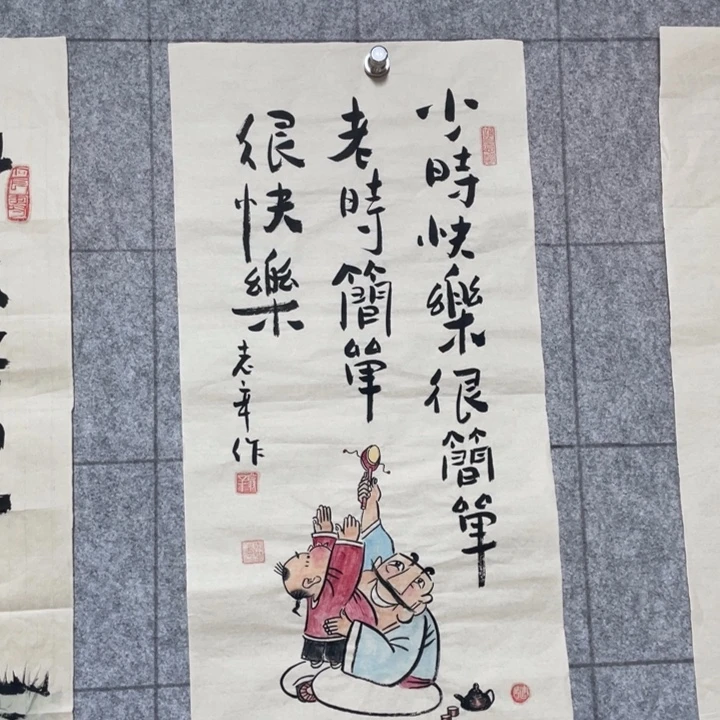 小時快樂很簡單
老時簡單
很快樂
志章作